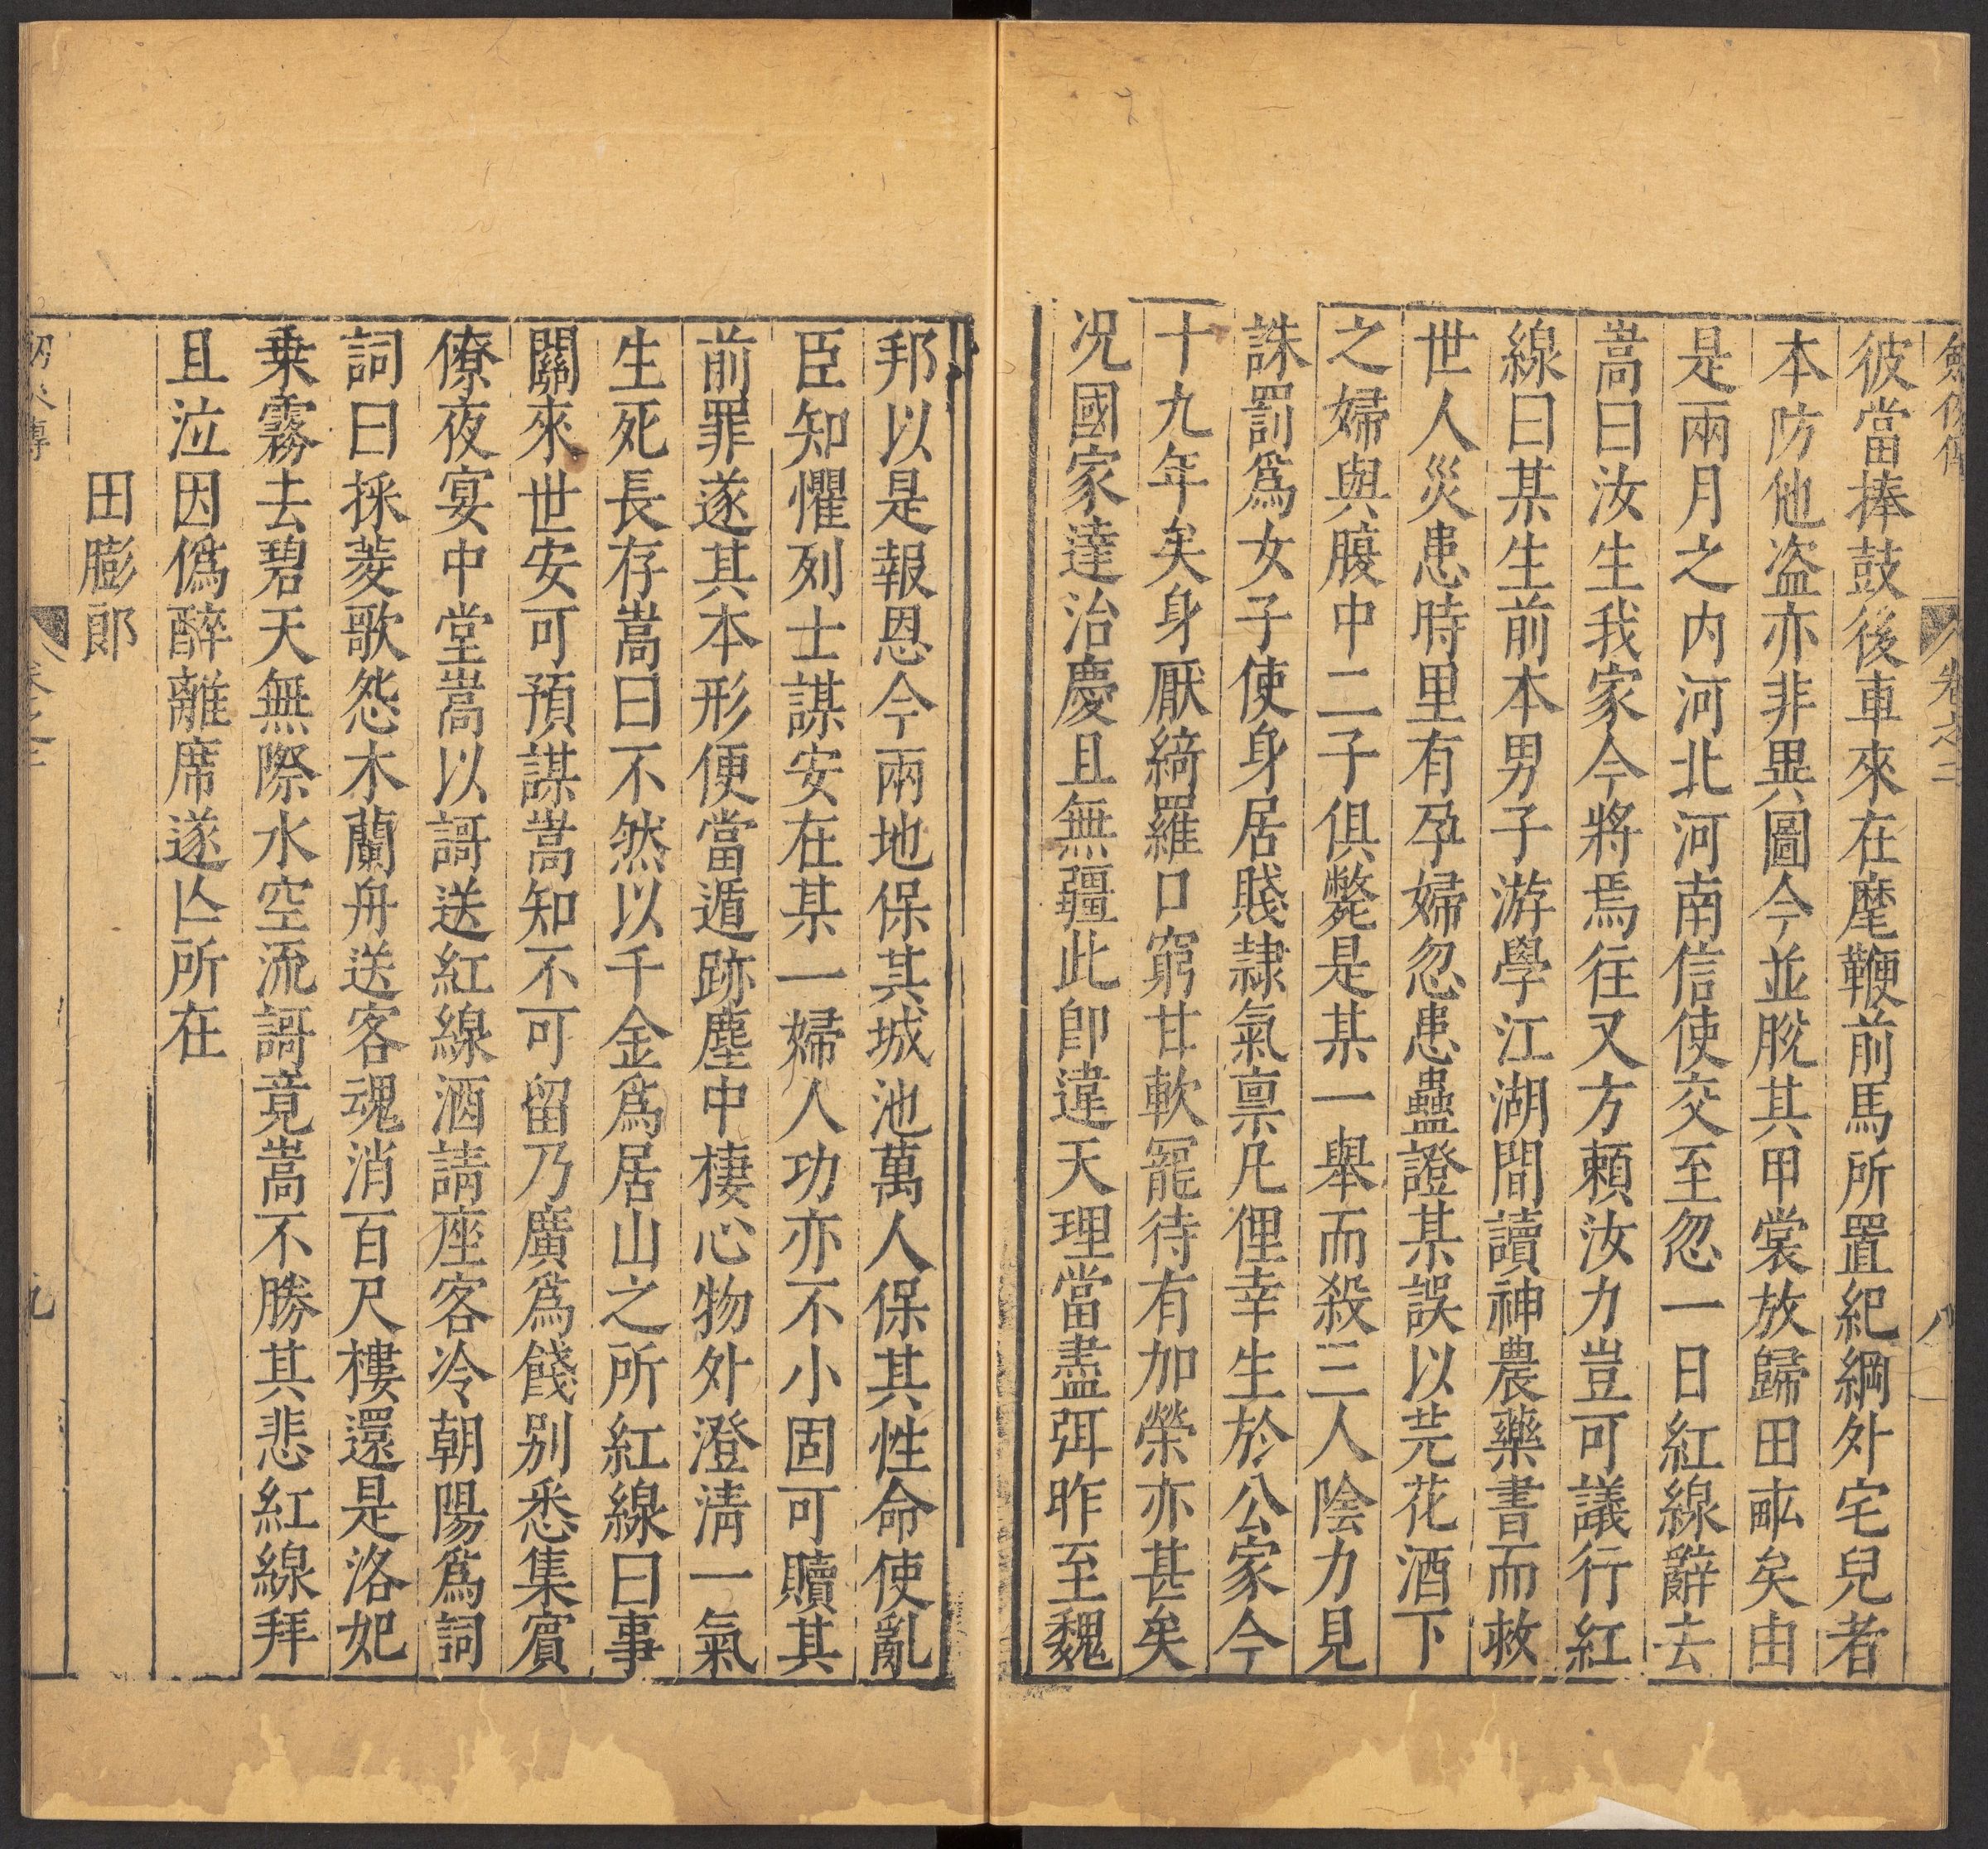 卷之二
八
彼當捧鼓後車來在麾鞭前馬所置紀綱外宅兒者
本防他盗亦非異圖今並脫其甲裳放歸田畝矣由
是兩月之内河北河南信使交至忽一日紅線辭去
嵩曰汝生我家今將焉往又方頼汝力豈可議行紅
線曰某生前本男子游學江湖間讀神農藥書而救
世人災患時里有孕婦忽患蠱證某誤以芫花酒下
之婦與腹中二子俱斃是某一舉而殺三人陰力見
誅罰爲女子使身居賤隷氣禀凡俚幸生於公家今
十九年矣身厭綺羅口窮甘軟寵待有加榮亦甚矣
况國家達治慶且無疆此卽違天理當盡弭昨至魏
邦以是報恩今兩地保其城池萬人保其性命使亂
臣知懼列士謀安在某一婦人功亦不小固可贖其
前罪遂其本形便當遁跡塵中棲心物外澄淸一氣
生死長存嵩曰不然以千金爲居山之所紅線曰事
關來世安可預謀嵩知不可留乃廣爲餞别悉集賓
僚夜宴中堂嵩以謌送紅線酒請座客冷朝陽爲詞
詞曰採菱歌怨木蘭舟送客魂消百尺樓還是洛妃
乗霧去碧天無際水空流謌竟嵩不勝其悲紅線拜
且泣因僞醉離席遂亾所在
田膨郎
九